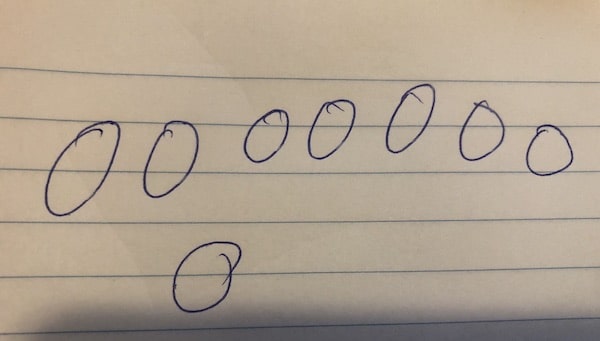 0000000
0